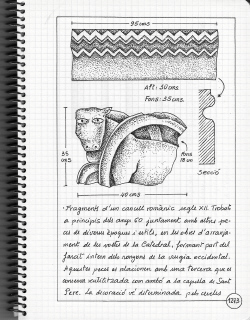 95 cms
Alt: 30 cms
Fons: 35 cms.
35 cms
fons 18 cm
Secció
40 cms
- Fragments d'un cancell romànic segle XII. Trobat
a principis dels anys 60 juntament amb altres pe-
ces de diverses èpoques i estils, en les obres d'arranja-
ment de les voltes de la Catedral, formant part del
farcit intern dels ronyons de la crugia occidental.
Aquestes peces es relacionen amb una tercera que es
conserva reutilitzada com ambó a la capella de Sant
Pere. La decoració ve determinada pels cercles